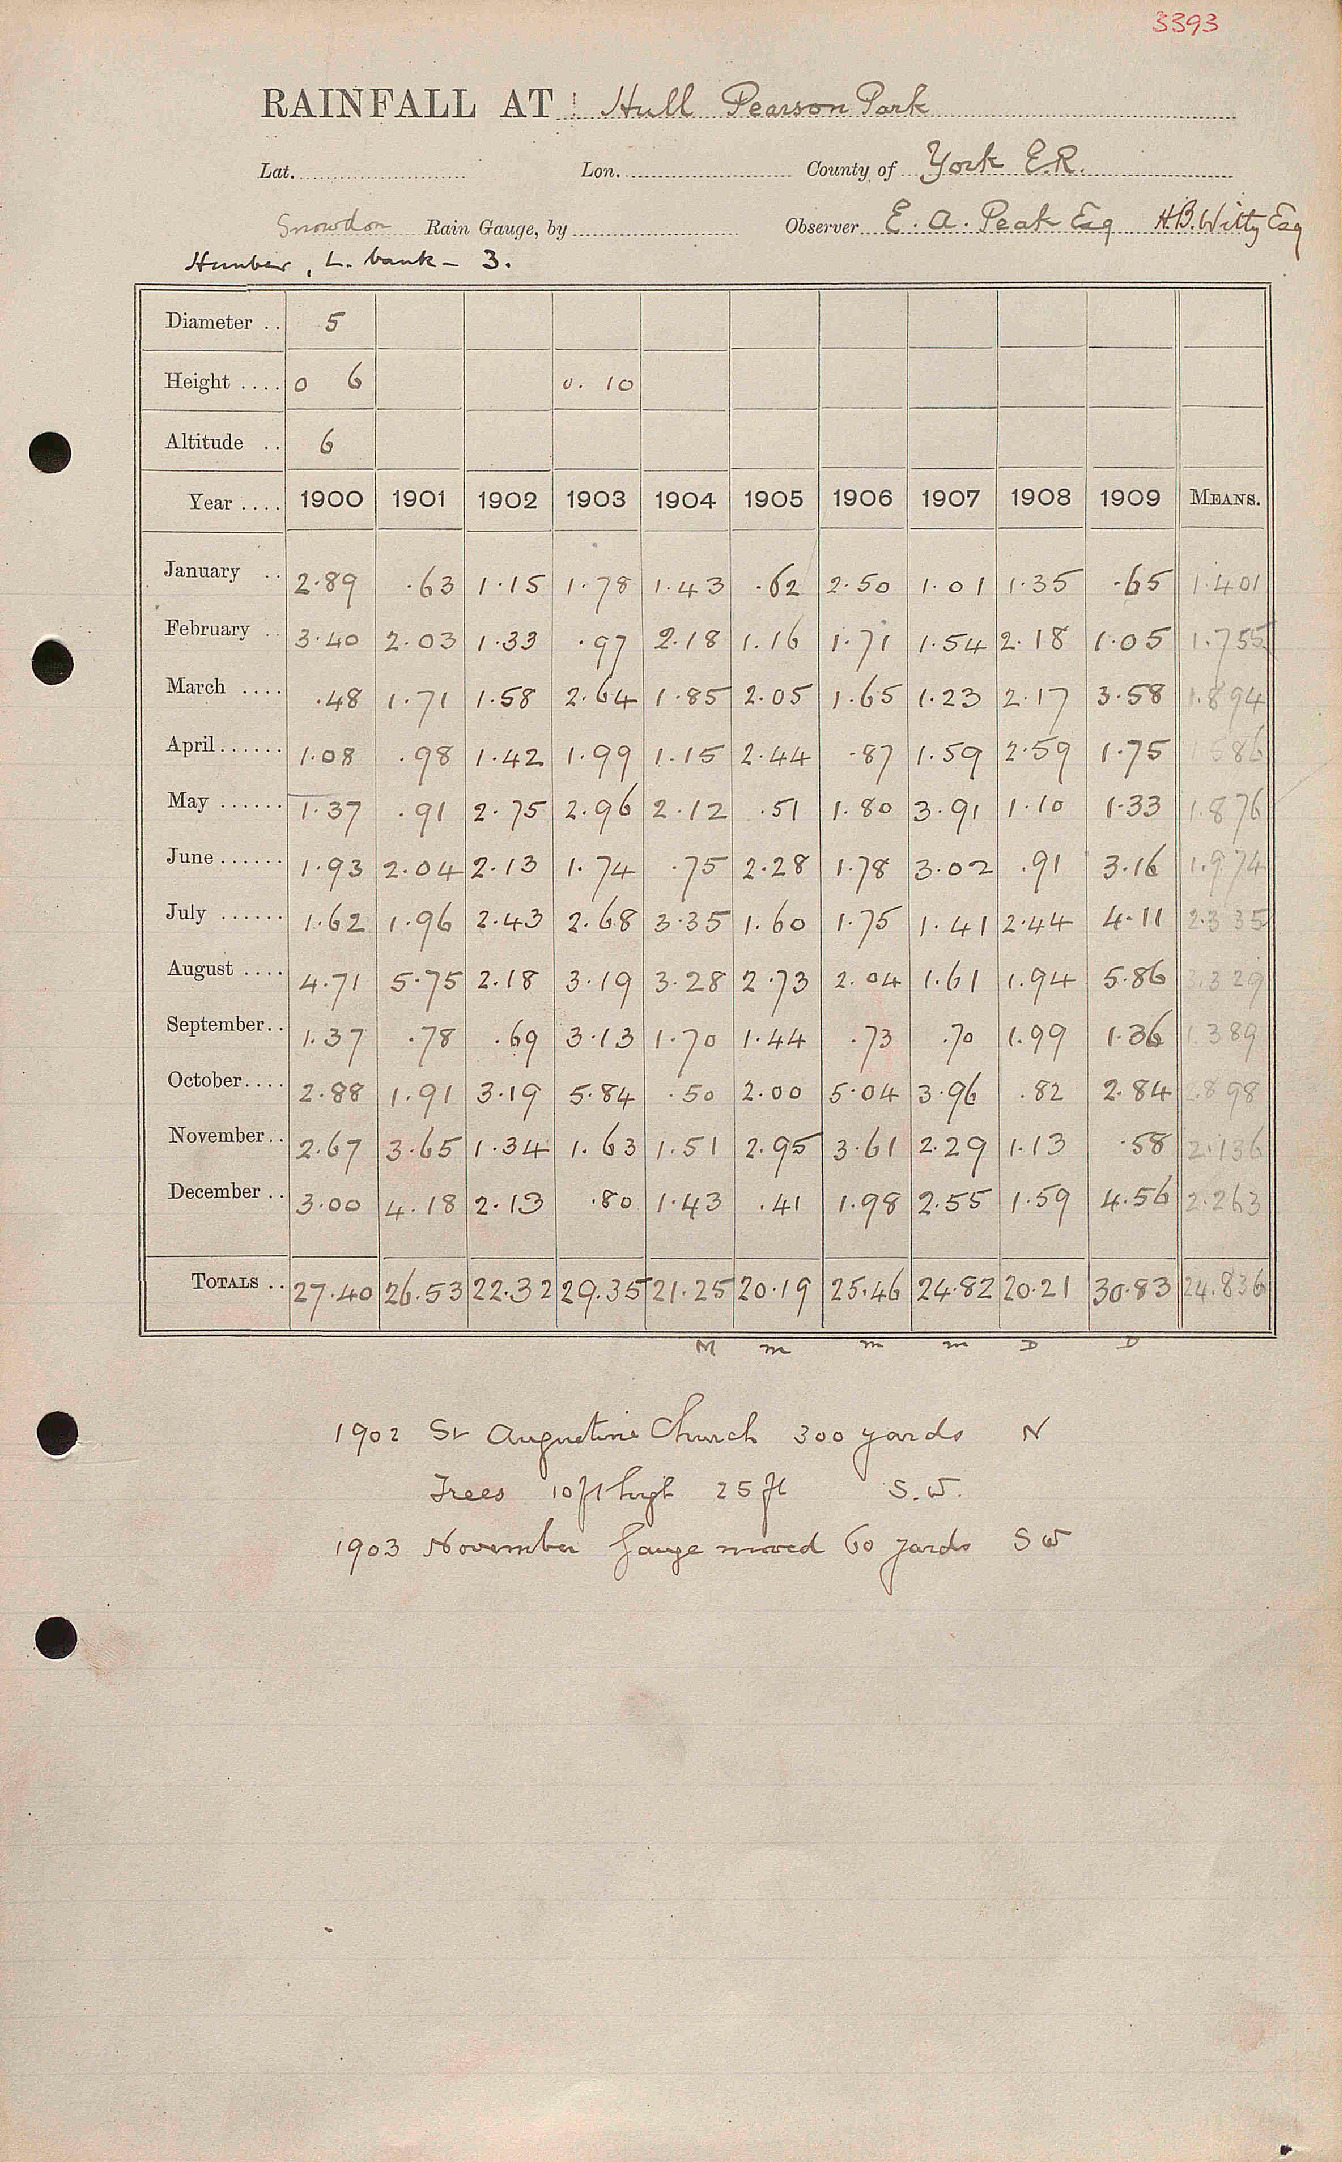 3393
RAINFALL AT Hull Pearson Park
Lat. Lon. County of York E.R.
Snowdon Rain Gauge, by Observer E. A. Peak Esq H.B. Witty Esq
Humber, L. bank - 3.
Diameter .. 5
Height .... 0 6 0. 10
Altitude .. 6
Year .... 1900 1901 1902 1903 1904 1905 1906 1907 1908 1909 MEANS.
January .. 2.89 .63 1.15 1.78 1.43 .62 2.50 1.01 1.35 .65 1.401
February .. 3.40 2.03 1.33 .97 2.18 1.16 1.71 1.54 2.18 1.05 1.755
March .... .48 1.71 1.58 2.64 1.85 2.05 1.65 1.23 2.17 3.58 1.894
April ...... 1.08 .98 1.42 1.99 1.15 2.44 .87 1.59 2.59 1.75 1.586
May ...... 1.37 .91 2.75 2.96 2.12 .51 1.80 3.91 1.10 1.33 1.876
June ...... 1.93 2.04 2.13 1.74 .75 2.28 1.78 3.02 .91 3.16 1.974
July ...... 1.62 1.96 2.43 2.68 3.35 1.60 1.75 1.41 2.44 4.11 2.335
August .... 4.71 5.75 2.18 3.19 3.28 2.73 2.04 1.61 1.94 5.86 3.329
September .. 1.37 .78 .69 3.13 1.70 1.44 .73 .70 1.99 1.36 1.389
October .... 2.88 1.91 3.19 5.84 .50 2.00 5.04 3.96 .82 2.84 2.898
November .. 2.67 3.65 1.34 1.63 1.51 2.95 3.61 2.29 1.13 .58 2.136
December .. 3.00 4.18 2.13 .80 1.43 .41 1.98 2.55 1.59 4.56 2.263
TOTALS .. 27.40 26.53 22.32 29.35 21.25 20.19 25.46 24.82 20.21 30.83 24.836
M m m m D D
1902 St Augustine Church 300 yards N
Trees 10 ft high 25 ft S.W.
1903 November gauge moved 60 yards SW